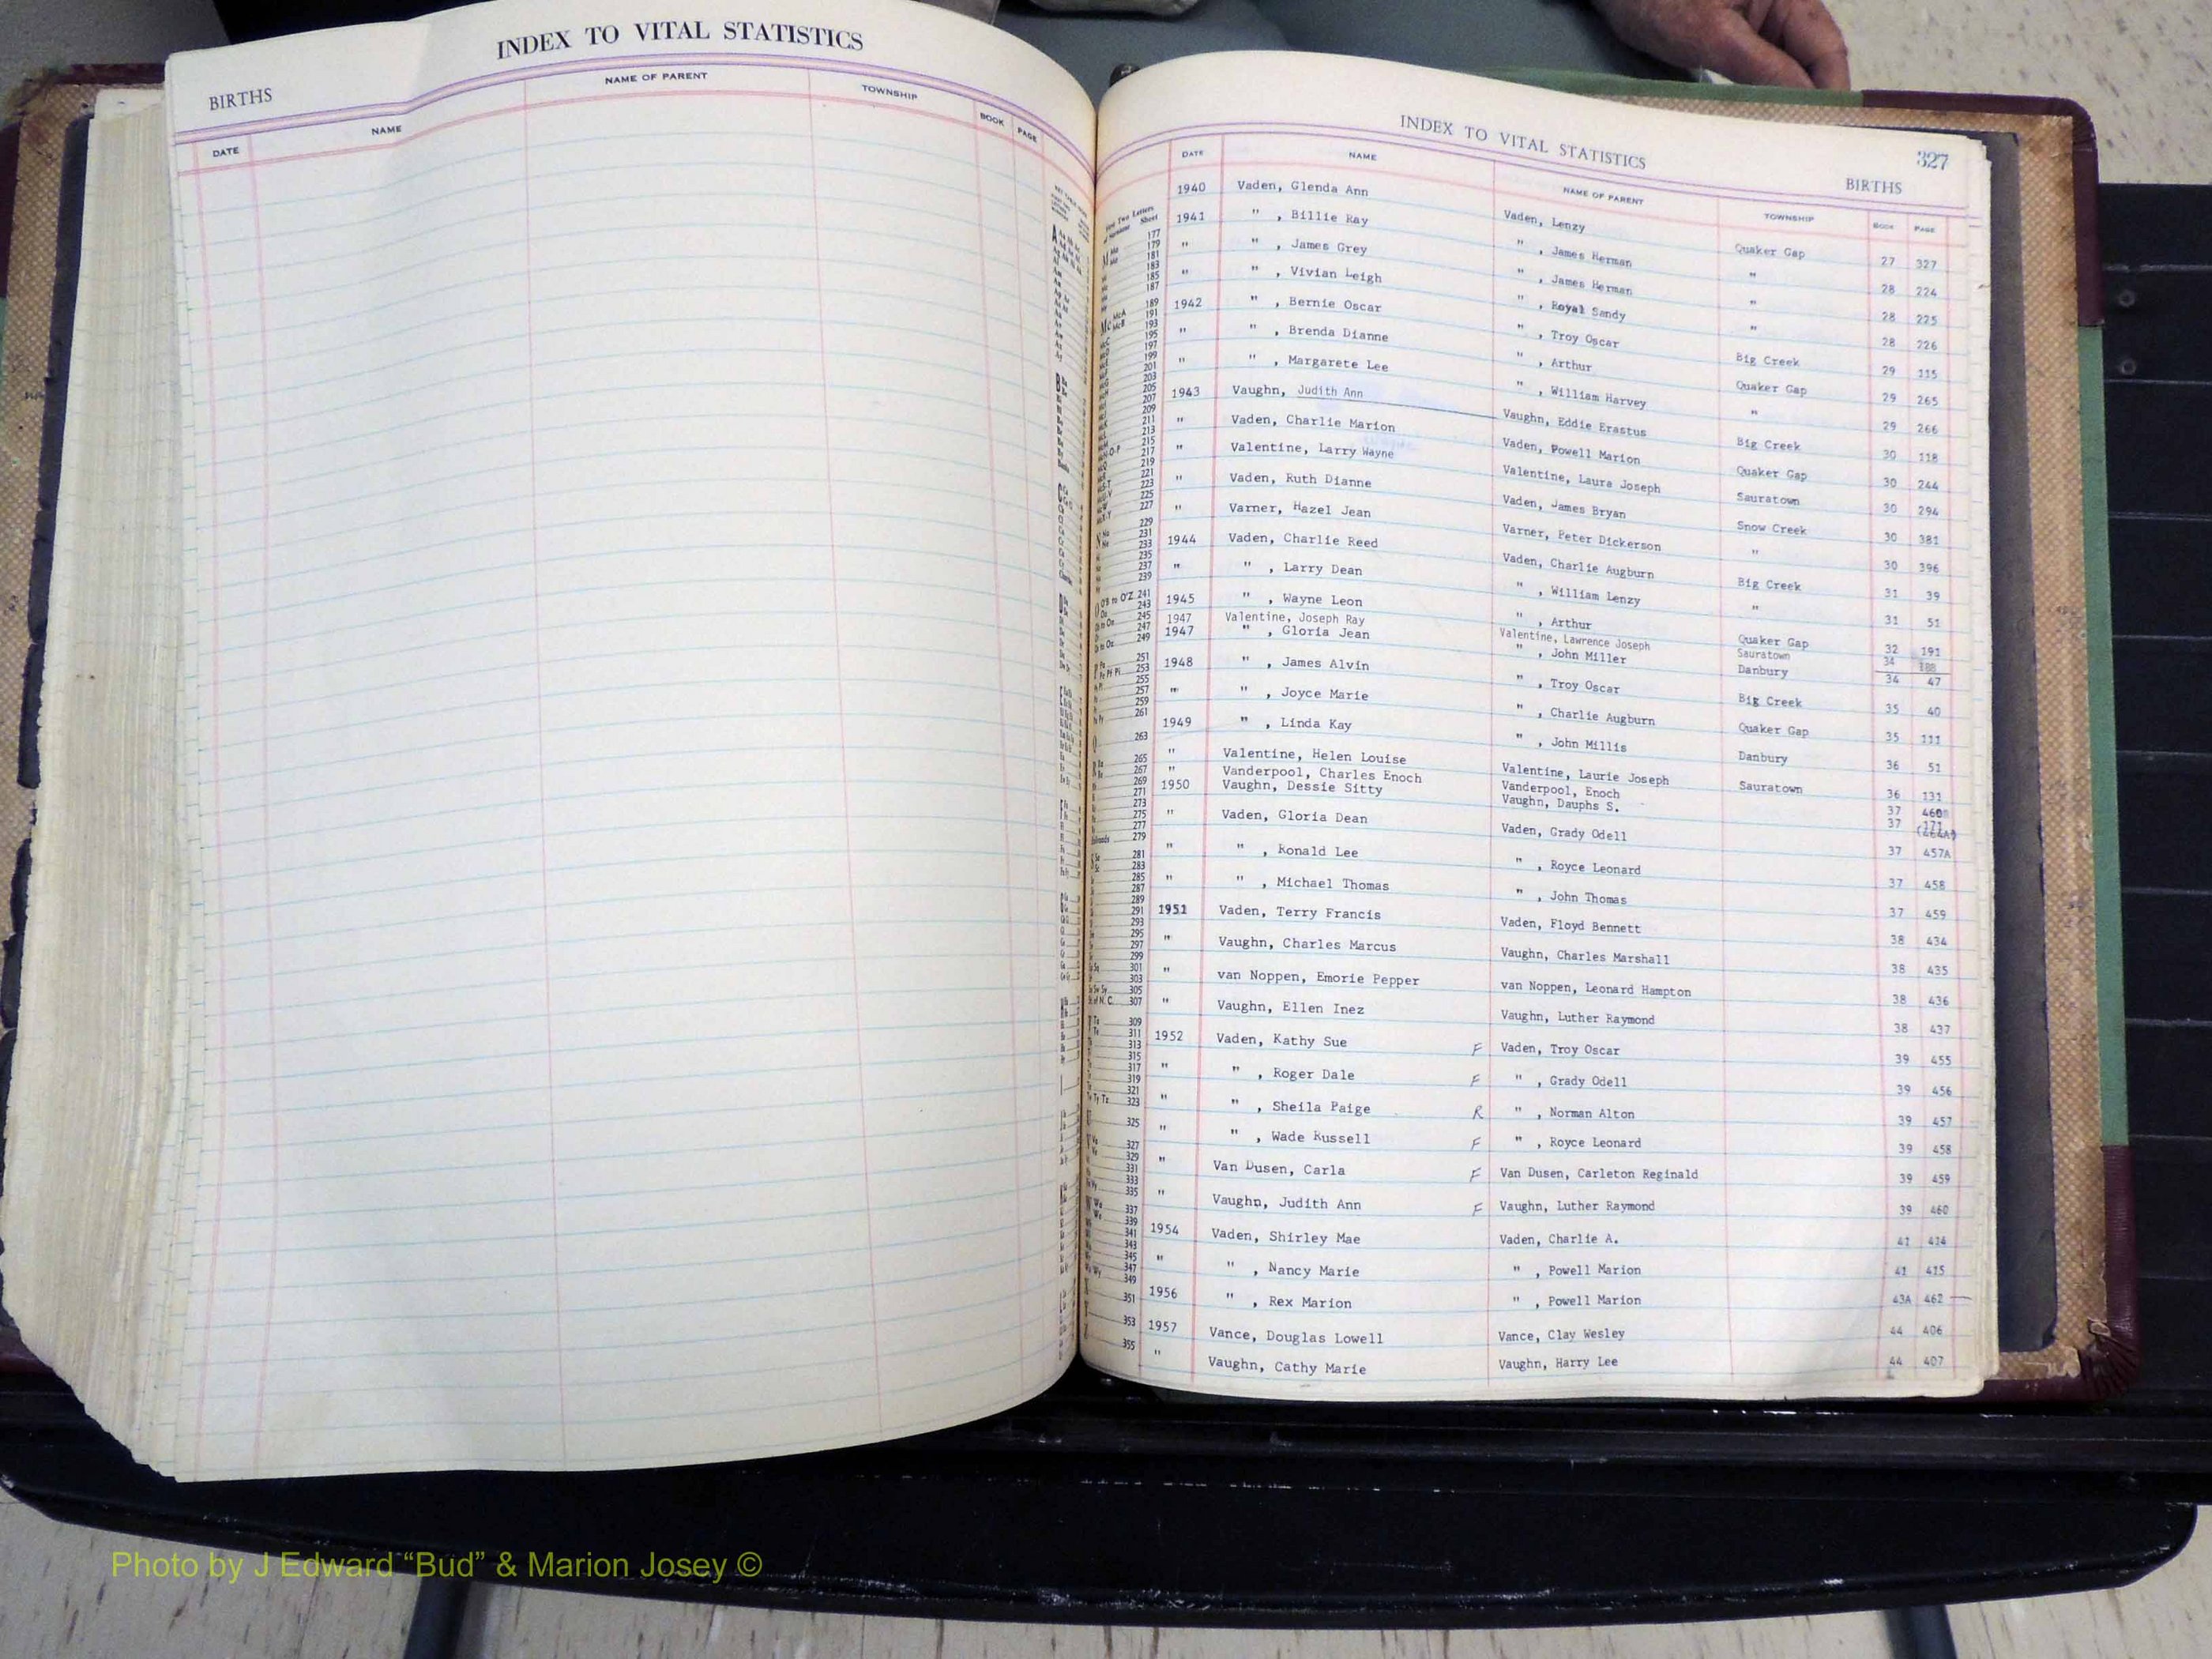 INDEX TO VITAL STATISTICS
BIRTHS
DATE NAME NAME OF PARENT TOWNSHIP BOOK PAGE
INDEX TO VITAL STATISTICS 327
BIRTHS
DATE NAME NAME OF PARENT TOWNSHIP BOOK PAGE
1940 Vaden, Glenda Ann Vaden, Lenzy Quaker Gap 27 327
1941 " , Billie Kay " , James Herman " 28 224
" " , James Grey " , James Herman " 28 225
" " , Vivian Leigh " , Royal Sandy " 28 226
1942 " , Bernie Oscar " , Troy Oscar Big Creek 29 115
" " , Brenda Dianne " , Arthur Quaker Gap 29 265
" " , Margarete Lee " , William Harvey " 29 266
1943 Vaughn, Judith Ann Vaughn, Eddie Erastus Big Creek 30 118
" Vaden, Charlie Marion Vaden, Powell Marion Quaker Gap 30 244
" Valentine, Larry Wayne Valentine, Laura Joseph Sauratown 30 294
" Vaden, Ruth Dianne Vaden, James Bryan Snow Creek 30 381
" Varner, Hazel Jean Varner, Peter Dickerson " 30 396
1944 Vaden, Charlie Reed Vaden, Charlie Augburn Big Creek 31 39
" " , Larry Dean " , William Lenzy " 31 51
1945 " , Wayne Leon " , Arthur Quaker Gap 32 191
1947 Valentine, Joseph Ray Valentine, Lawrence Joseph Sauratown 34 188
1947 " , Gloria Jean " , John Miller Danbury 34 47
1948 " , James Alvin " , Troy Oscar Big Creek 35 40
" " , Joyce Marie " , Charlie Augburn Quaker Gap 35 111
1949 " , Linda Kay " , John Millis Danbury 36 51
" Valentine, Helen Louise Valentine, Laurie Joseph Sauratown 36 131
" Vanderpool, Charles Enoch Vanderpool, Enoch 37 460
1950 Vaughn, Dessie Sitty Vaughn, Dauphs S. 37 171
" Vaden, Gloria Dean Vaden, Grady Odell 37 457A
" " , Ronald Lee " , Royce Leonard 37 458
" " , Michael Thomas " , John Thomas 37 459
1951 Vaden, Terry Francis Vaden, Floyd Bennett 38 434
" Vaughn, Charles Marcus Vaughn, Charles Marshall 38 435
" van Noppen, Emorie Pepper van Noppen, Leonard Hampton 38 436
" Vaughn, Ellen Inez Vaughn, Luther Raymond 38 437
1952 Vaden, Kathy Sue F Vaden, Troy Oscar 39 455
" " , Roger Dale F " , Grady Odell 39 456
" " , Sheila Paige R " , Norman Alton 39 457
" " , Wade Russell F " , Royce Leonard 39 458
" Van Dusen, Carla F Van Dusen, Carleton Reginald 39 459
" Vaughn, Judith Ann F Vaughn, Luther Raymond 39 460
1954 Vaden, Shirley Mae Vaden, Charlie A. 41 414
" " , Nancy Marie " , Powell Marion 41 415
1956 " , Rex Marion " , Powell Marion 43A 462
1957 Vance, Douglas Lowell Vance, Clay Wesley 44 406
" Vaughn, Cathy Marie Vaughn, Harry Lee 44 407
Photo by J Edward “Bud” & Marion Josey ©